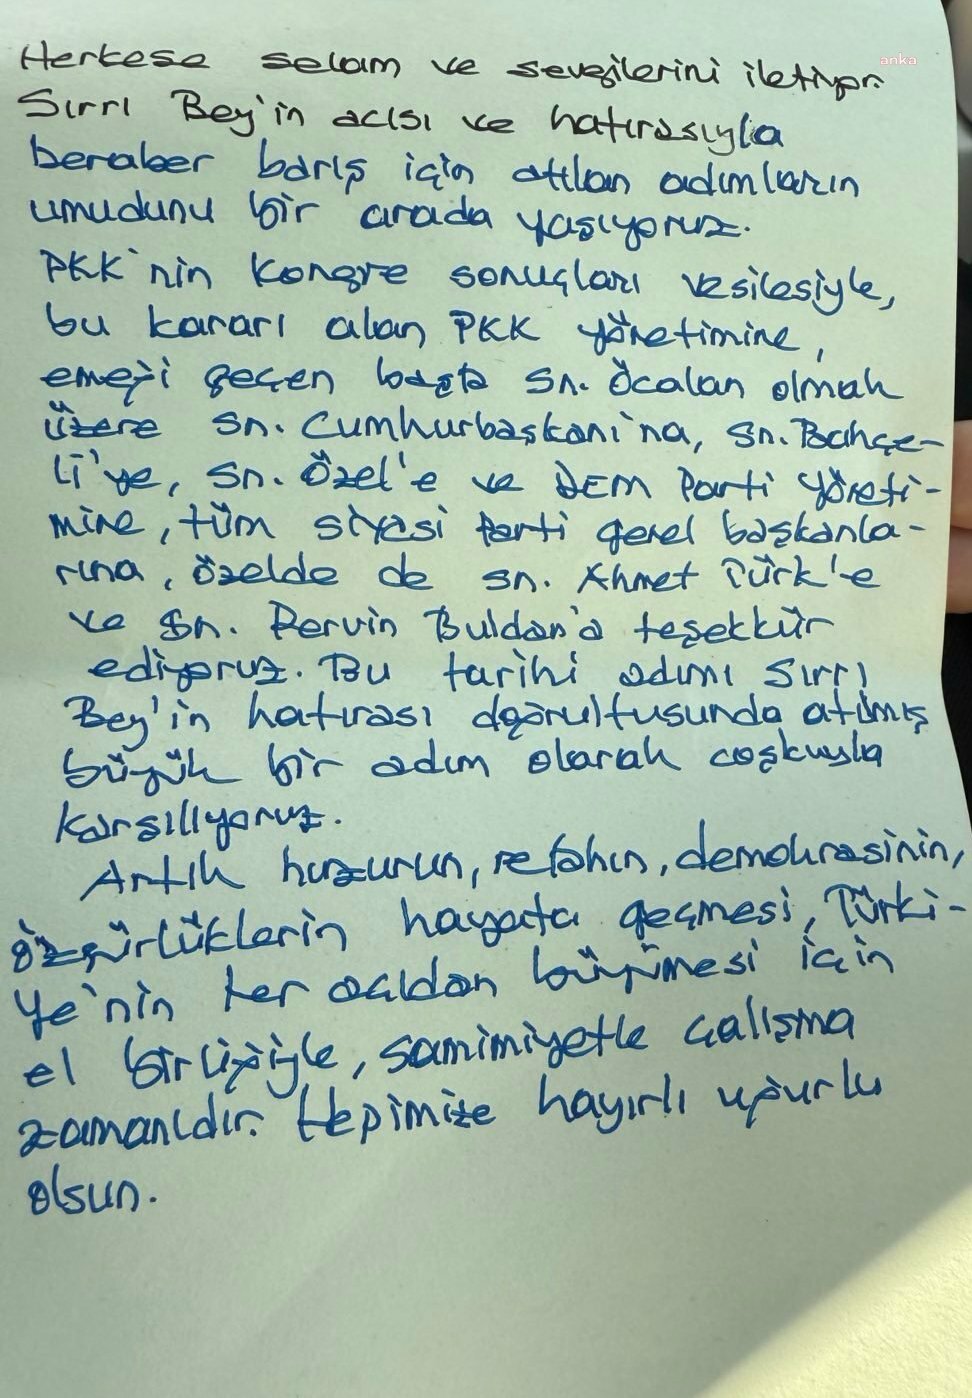 anka
Herkese selam ve sevgilerini iletiyor.
Sırrı Bey'in acısı ve hatırasıyla
beraber barış için atılan adımların
umudunu bir arada yaşıyoruz.
PKK'nin kongre sonuçları vesilesiyle,
bu kararı alan PKK yönetimine,
emeği geçen başta Sn. Öcalan olmak
üzere Sn. Cumhurbaşkanı'na, Sn. Bahçe-
li'ye, Sn. Özel'e ve DEM Parti Yöneti-
mine, tüm siyasi Parti genel başkanla-
rına, özelde de Sn. Ahmet Türk'e
ve Sn. Pervin Buldan'a teşekkür
ediyoruz. Bu tarihi adımı Sırrı
Bey'in hatırası doğrultusunda atılmış
büyük bir adım olarak coşkuyla
karşılıyoruz.
Artık huzurun, refahın, demokrasinin,
özgürlüklerin hayata geçmesi, Türki-
ye'nin her açıdan büyümesi için
el birliğiyle, samimiyetle çalışma
zamanıdır. Hepimize hayırlı uğurlu
olsun.